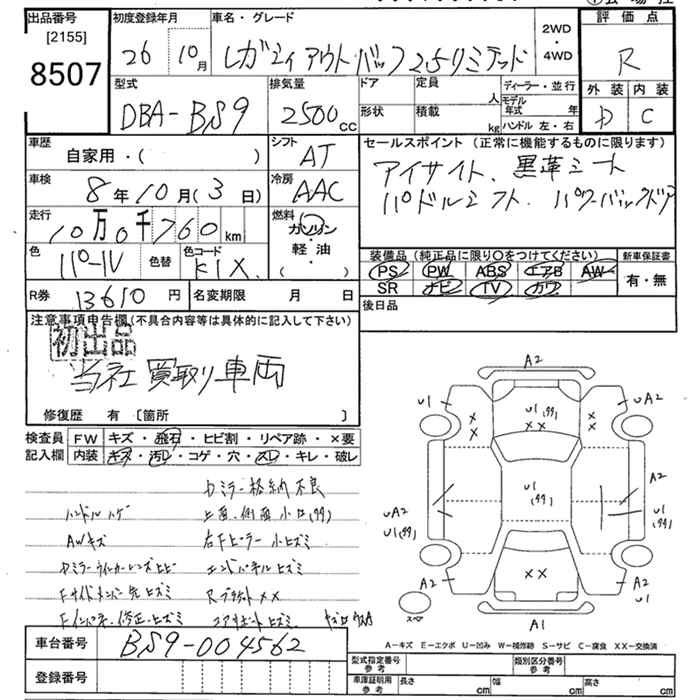 出品番号 初度登録年月 車名・グレード 評価点
[2155]
8507 26 10月 レガシィ アウトバック 2.5リミテッド 2WD・4WD R
型式 排気量 ドア 定員 人 ディーラー・並行 外装 内装
DBA-BS9 2500cc 形状 積載 kg モデル年式 年 ハンドル 左・右 D C
車歴 シフト セールスポイント(正常に機能するものに限ります)
自家用・( ) AT アイサイト、黒革シート
車検 8年10月(3日) 冷房 AAC パドルシフト、パワーバックドア
走行 10万0千760km 燃料 ガソリン・軽油( )
色 パール 色替 色コード K1X 装備品(純正品に限り○をつけてください) 新車保証書
PS PW ABS エアB AW 有・無
SR ナビ TV カワ
R券 13610円 名変期限 月 日 後日品
注意事項申告欄(不具合内容等は具体的に記入して下さい)
初出品
当社買取り車両
修復歴 有〔箇所 〕
検査員記入欄 FW キズ・飛石・ヒビ割・リペア跡・×要
内装 キズ・汚レ・コゲ・穴・スレ・キレ・破レ
Dミラー格納不良
ハンドルハゲ 上面、側面小凹(多)
AWキズ 右下ピラー小ヒズミ
Dミラーウィンカーレンズヒビ エンドパネルヒズミ
Fサイドメンバー先ヒズミ
Fインパネ修正、ヒズミ
A2
U1 U1 UA2
×× ××
U1
A2
UA2 U1
U1
A2 ×× A2 U1
スペア A1
A-キズ E-エクボ U-凹み W-補修跡 S-サビ C-腐食 XX-交換済
車台番号 BS9-004562
登録番号
型式指定番号参考 類別区分番号参考
車庫証明用参考 長さ cm 幅 cm 高さ cm